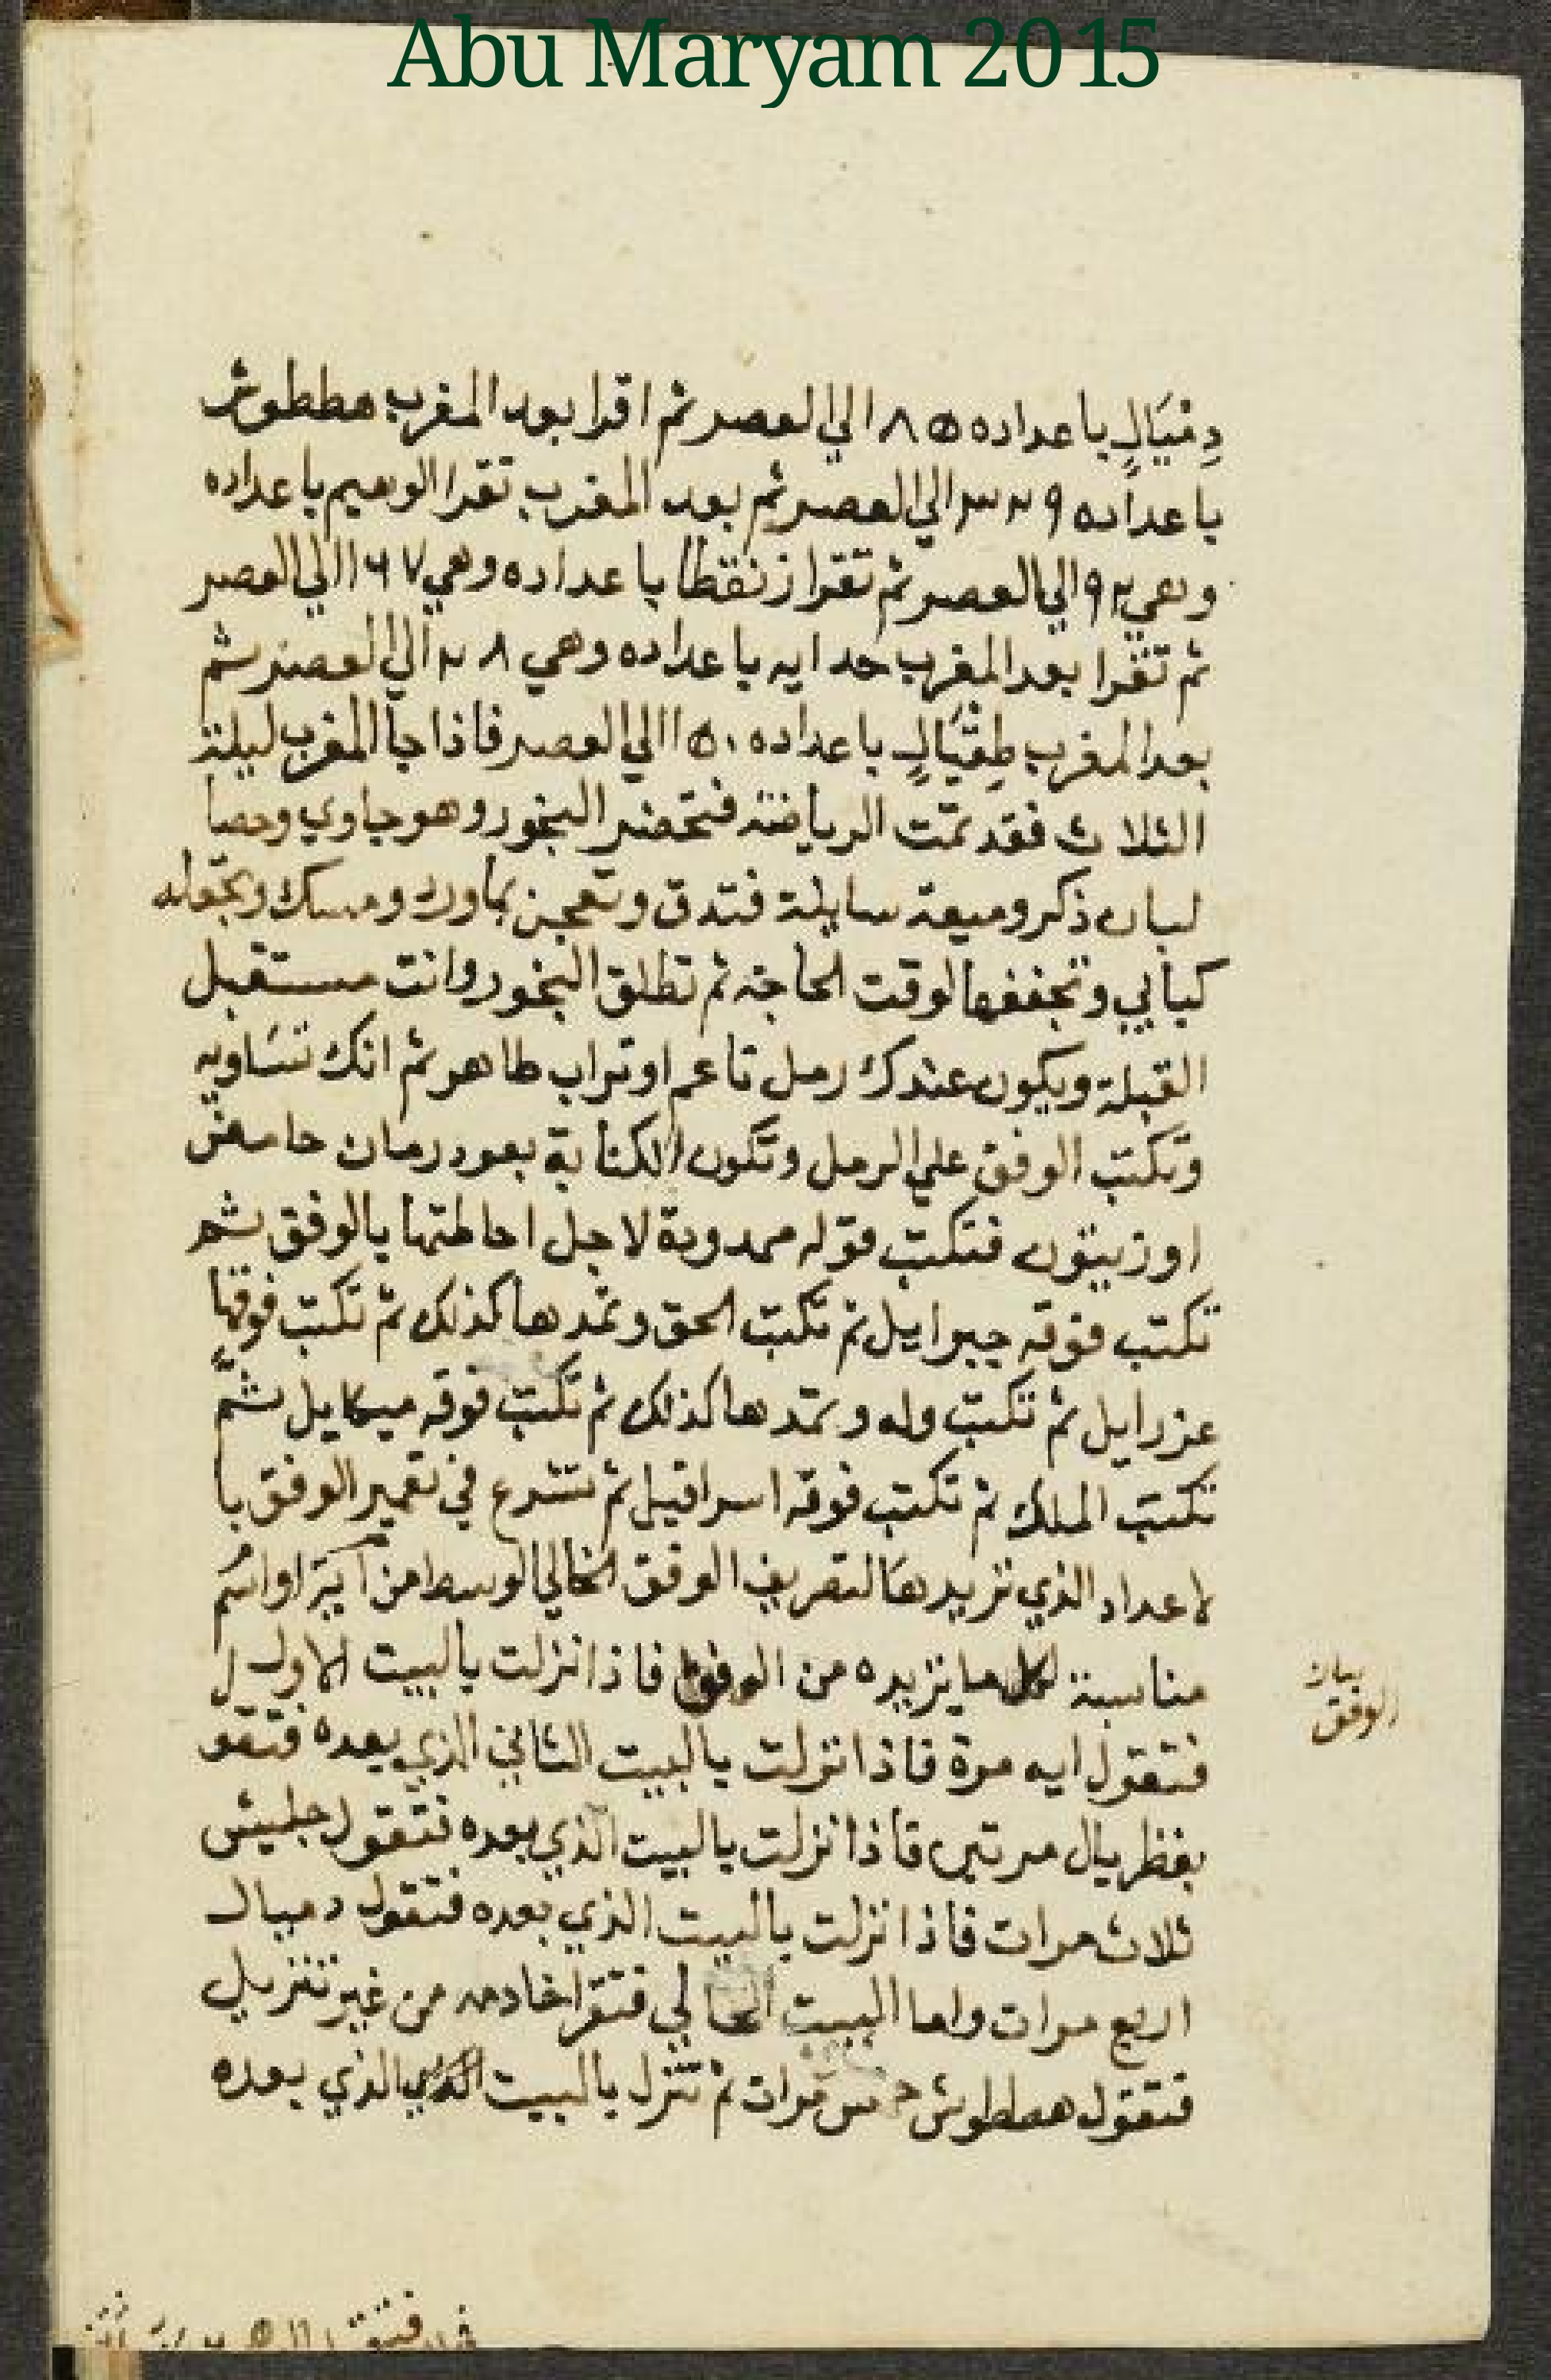 Abu Maryam 2015
دِمْيَالٍ باعداده ٨٥ الي العصر ثم اقرا بعد المغرب هططوش
باعداده ٣٢٩ الي العصر ثم بعد المغرب تقرا الوهيم باعداده
وهي ٩٢ الي العصر ثم تقرا زنقطا باعداده وهي ١٦٧ الي العصر
ثم تقرا بعد المغرب حد ايه باعداده وهي ٢٨ الي العصر ثم
بعد المغرب طِقْيَالٍ باعداده ١٥٠ الي العصر فاذا جا المغرب ليلة
الثلاث فقد تمت الرياضة فتحضر البخور وهو جاوي وحصا
لبان ذكر وميعة سايلة فتدق وتعجن بماورد ومسك وتجعله
كبابي وتجففها لوقت الحاجة ثم تطلق البخور وانت مستقبل
القبلة ويكون عندك رمل ناعم او تراب طاهر ثم انك تساويه
وتكتب الوفق علي الرمل وتكون الكتابة بعود رمان حامض
او زيتون فتكتب قوله ممدودة لاجل احاطتها بالوفق ثم
تكتب فوقه جبرايل ثم تكتب الحق وتمدها كذلك ثم تكتب فوقها
عزرايل ثم تكتب وله وتمدها كذلك ثم تكتب فوقه ميكايل ثم
تكتب الملك ثم تكتب فوقه اسرافيل ثم تشرع في تعمير الوفق با
لاعداد الذي تريدها لتصريف الوفق الخالي الوسط من آية او اسم
مناسبة لكل ما تريده من الوفق فاذا نزلت بالبيت الاول
فتقول ايه مرة فاذا نزلت بالبيت الثاني الذي بعده فتقو
بفطريال مرتين فاذا نزلت بالبيت الذي بعده فتقول جلميش
ثلاث مرات فاذا نزلت بالبيت الذي بعده فتقول دميال
اربع مرات واما البيت الخالي فتقرا خادمه من غير تنزيل
فتقول هططوش خمس مرات ثم تنزل بالبيت الذي بعده
بيان
الوفق